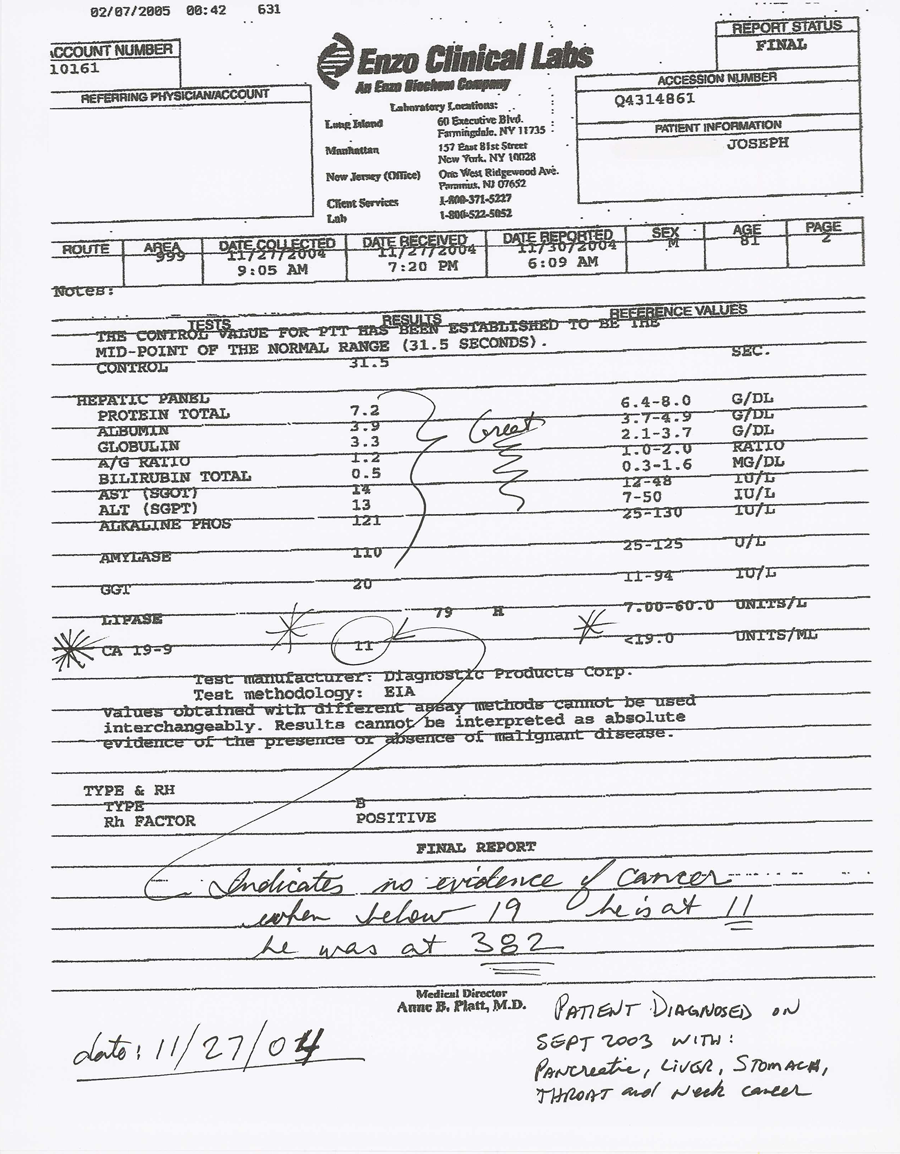 02/07/2005 00:42 631
ACCOUNT NUMBER
10161
REFERRING PHYSICIAN/ACCOUNT
Enzo Clinical Labs
An Enzo Biochem Company
Laboratory Locations:
Long Island 60 Executive Blvd.
Farmingdale, NY 11735
Manhattan 157 East 81st Street
New York, NY 10028
New Jersey (Office) One West Ridgewood Ave.
Paramus, NJ 07652
Client Services 1-800-371-5227
Lab 1-800-522-5052
REPORT STATUS
FINAL
ACCESSION NUMBER
Q4314861
PATIENT INFORMATION
JOSEPH
ROUTE AREA DATE COLLECTED DATE RECEIVED DATE REPORTED SEX AGE PAGE
999 11/27/2004 11/27/2004 11/30/2004 M 81 2
9:05 AM 7:20 PM 6:09 AM
Notes:
TESTS RESULTS REFERENCE VALUES
THE CONTROL VALUE FOR PTT HAS BEEN ESTABLISHED TO BE THE
MID-POINT OF THE NORMAL RANGE (31.5 SECONDS).
CONTROL 31.5 SEC.
HEPATIC PANEL
PROTEIN TOTAL 7.2 6.4-8.0 G/DL
ALBUMIN 3.9 3.7-4.9 G/DL
GLOBULIN 3.3 2.1-3.7 G/DL
A/G RATIO 1.2 1.0-2.0 RATIO
BILIRUBIN TOTAL 0.5 0.3-1.6 MG/DL
AST (SGOT) 14 12-48 IU/L
ALT (SGPT) 13 7-50 IU/L
ALKALINE PHOS 121 25-130 IU/L
Great
AMYLASE 110 25-125 U/L
GGT 20 11-94 IU/L
LIPASE 79 H 7.00-60.0 UNITS/L
CA 19-9 11 <19.0 UNITS/ML
Test manufacturer: Diagnostic Products Corp.
Test methodology: EIA
Values obtained with different assay methods cannot be used
interchangeably. Results cannot be interpreted as absolute
evidence of the presence or absence of malignant disease.
TYPE & RH
TYPE B
Rh FACTOR POSITIVE
FINAL REPORT
Indicates no evidence of cancer
when below 19 he is at 11
he was at 382
Medical Director
Anne B. Platt, M.D.
date: 11/27/04
PATIENT DIAGNOSED ON
SEPT 2003 WITH:
PANCREATIC, LIVER, STOMACH,
THROAT and Neck cancer